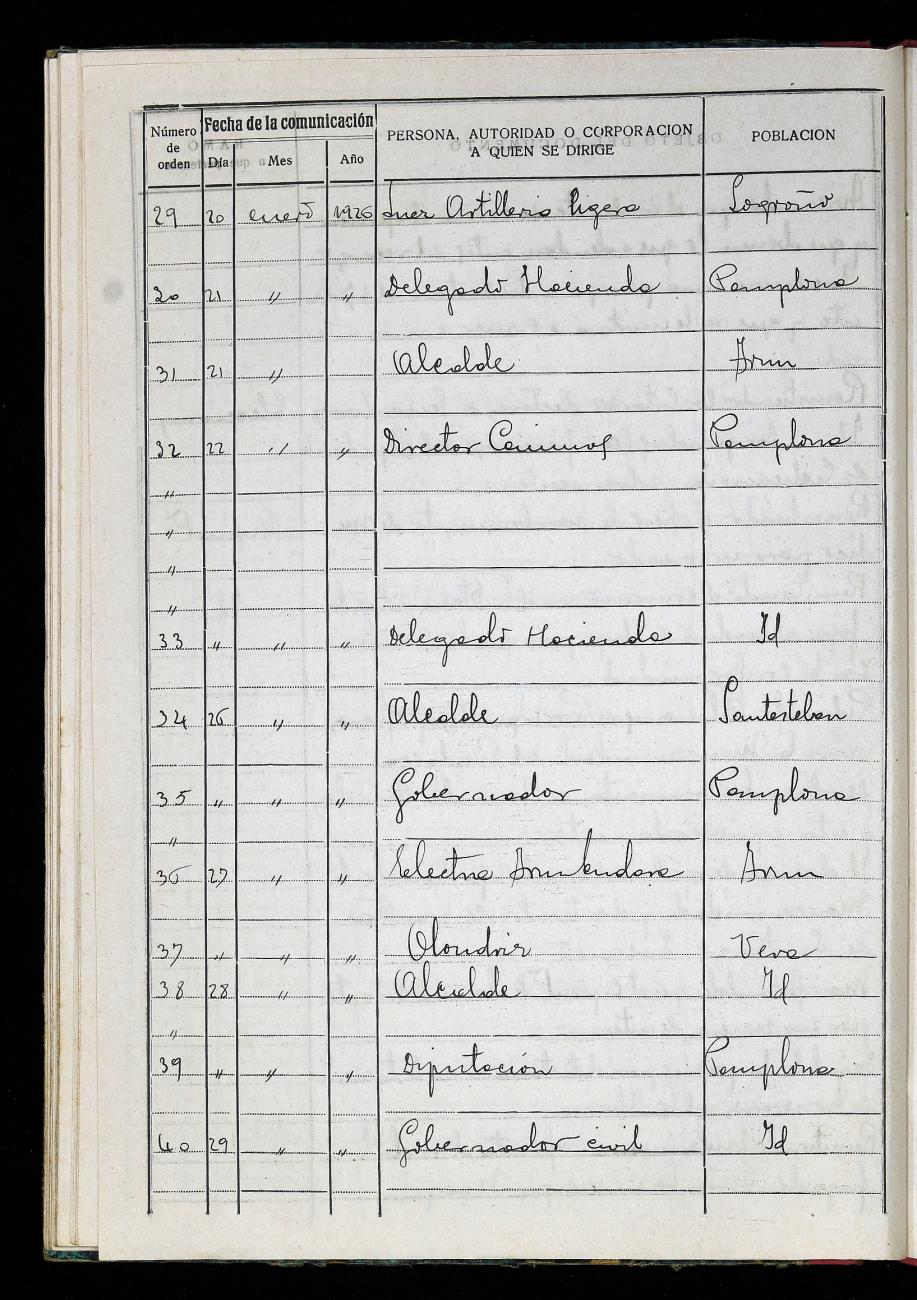 Número de orden Fecha de la comunicación PERSONA, AUTORIDAD O CORPORACION A QUIEN SE DIRIGE POBLACION
Día Mes Año
29 20 enero 1926 Juez Artilleria ligera Logroño
30 21 " " Delegado Hacienda Pamplona
31 21 " Alcalde Irun
32 22 " " Director Caminos Pamplona
"
"
"
"
33 " " " Delegado Hacienda Id
34 26 " " Alcalde Santesteban
35 " " " Gobernador Pamplona
"
36 27 " " Electra Irun Irun
37 " " " Vera
38 28 " " Alcalde Id
"
39 " " " Diputación Pamplona
40 29 " " Gobernador civil Id